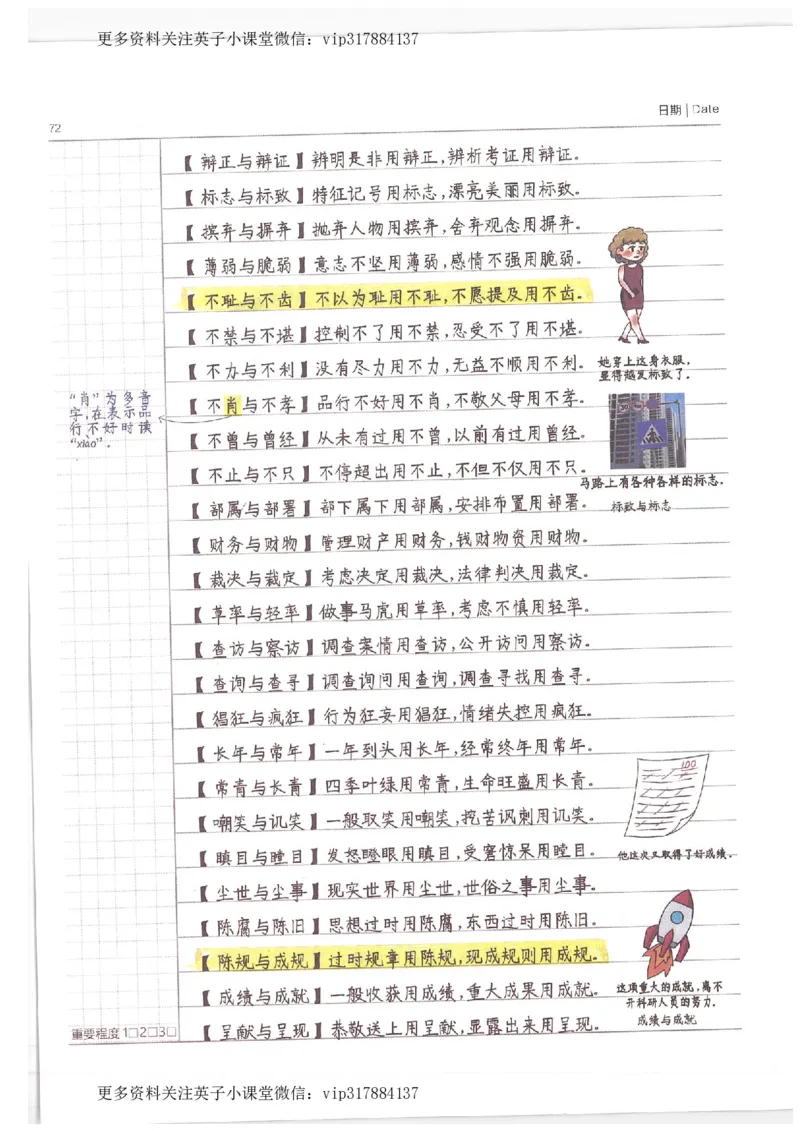 更多资料关注英子小课堂微信：vip317884137
日期 | Date
72
【辩正与辩证】辨明是非用辩正，辨析考证用辩证。
【标志与标致】特征记号用标志，漂亮美丽用标致。
【摈弃与摒弃】抛弃人物用摈弃，舍弃观念用摒弃。
【薄弱与脆弱】意志不坚用薄弱，感情不强用脆弱。
【不耻与不齿】不以为耻用不耻，不愿提及用不齿。
【不禁与不堪】控制不了用不禁，忍受不了用不堪。
【不力与不利】没有尽力用不力，无益不顺用不利。
她穿上这身衣服，
显得越发标致了。
【不肖与不孝】品行不好用不肖，不敬父母用不孝。
“肖”为多音
字，在表示品
行不好时读
“xiào”.
【不曾与曾经】从未有过用不曾，以前有过用曾经。
【不止与不只】不停超出用不止，不但不仅用不只。
马路上有各种各样的标志.
【部属与部署】部下属下用部属，安排布置用部署。
标致与标志
【财务与财物】管理财产用财务，钱财物资用财物。
【裁决与裁定】考虑决定用裁决，法律判决用裁定。
【草率与轻率】做事马虎用草率，考虑不慎用轻率。
【查访与察访】调查案情用查访，公开访问用察访。
【查询与查寻】调查询问用查询，调查寻找用查寻。
【猖狂与疯狂】行为狂妄用猖狂，情绪失控用疯狂。
【长年与常年】一年到头用长年，经常终年用常年。
【常青与长青】四季叶绿用常青，生命旺盛用长青。
100
【嘲笑与讥笑】一般取笑用嘲笑，挖苦讽刺用讥笑。
【瞋目与瞠目】发怒瞪眼用瞋目，受窘惊呆用瞠目。
他这次又取得了好成绩。
【尘世与尘事】现实世界用尘世，世俗之事用尘事。
【陈腐与陈旧】思想过时用陈腐，东西过时用陈旧。
【陈规与成规】过时规章用陈规，现成规则用成规。
【成绩与成就】一般收获用成绩，重大成果用成就。
这项重大的成就，离不
开科研人员的努力.
成绩与成就
【呈献与呈现】恭敬送上用呈献，显露出来用呈现。
重要程度 1□2□3□
更多资料关注英子小课堂微信：vip317884137